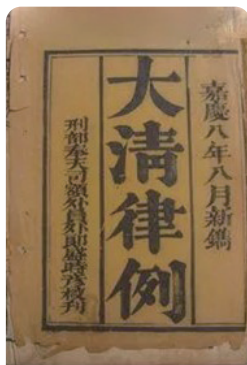 嘉慶八年八月新鐫
大淸律例
刑部奉天司額外員外郎盛時彥校刊